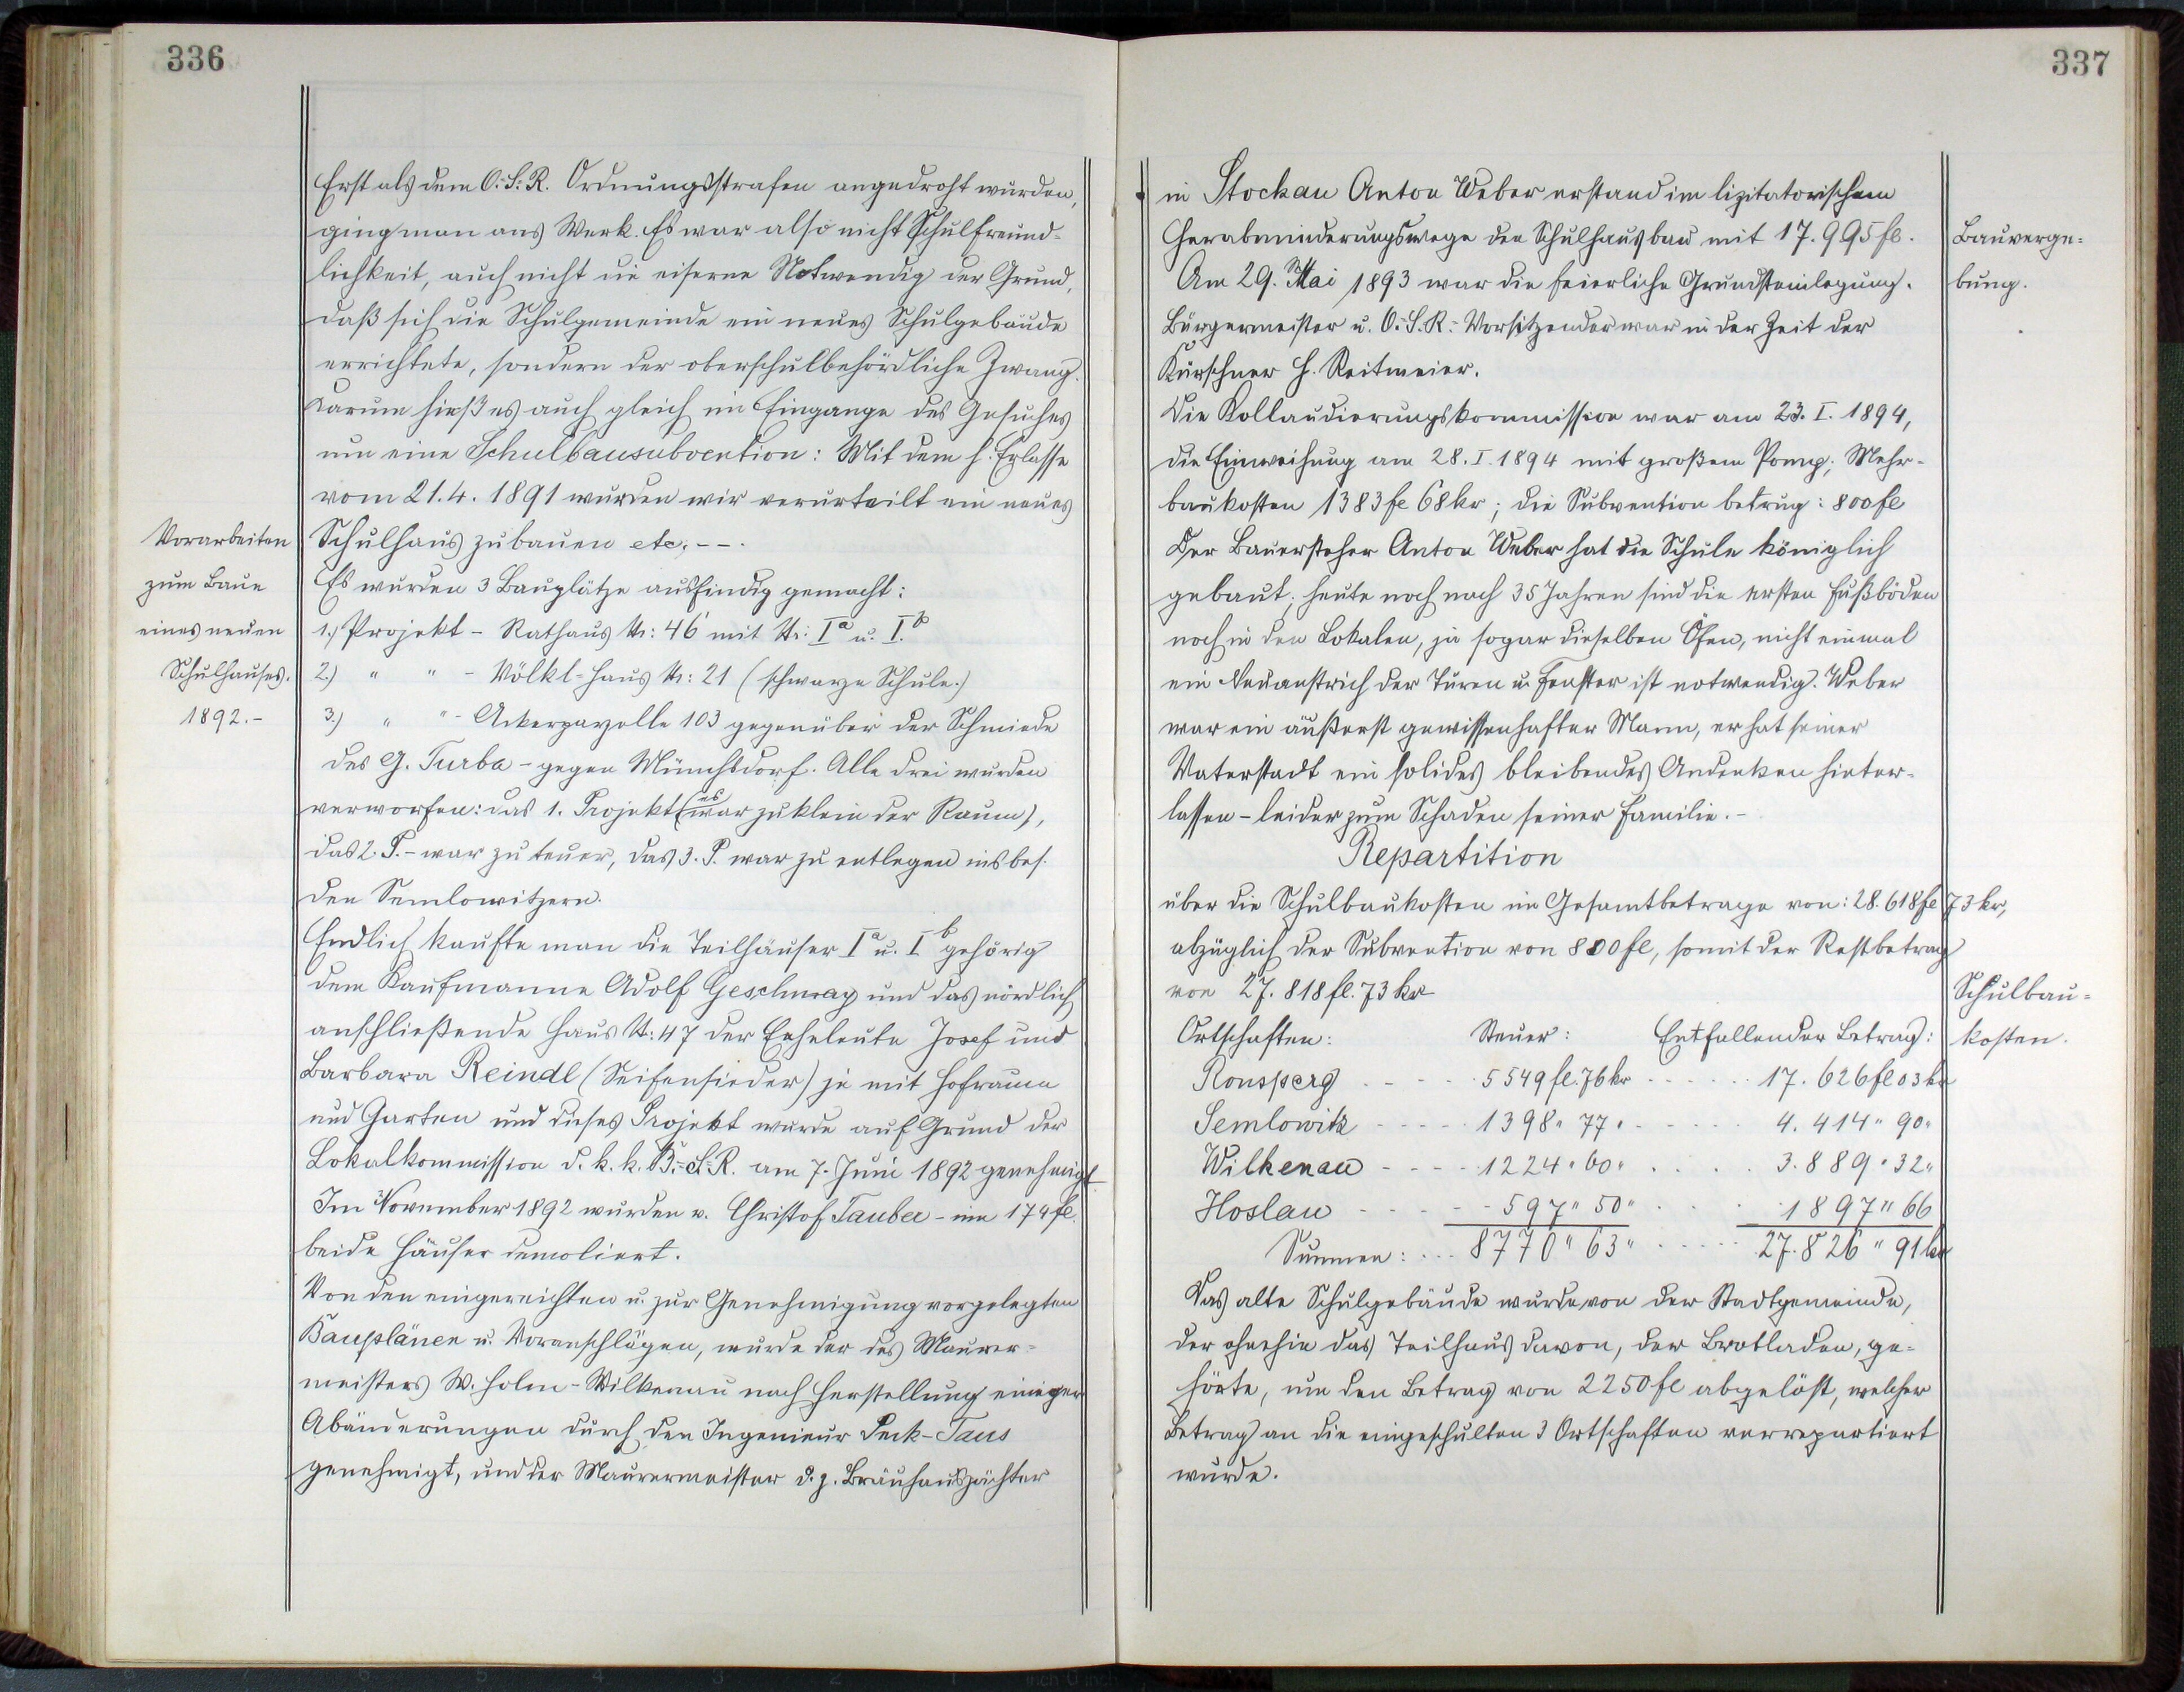 336
Erst als dem O.-S.-R. Ordnungsstrafen angedroht wurden,
ging man ans Werk. Es war also nicht Schulfreund-
lichkeit, auch nicht die eiserne Notwendig der Grund,
daß sich die Schulgemeinde ein neues Schulgebäude
errichtete, sondern der oberschulbehördliche Zwang.
Darum hieß es auch gleich im Eingange des Gesuches
um eine Schulbausubvention: Mit dem h. Erlasse
vom 21.4.1891 wurden wir verurteilt ein neues
Vorarbeiten
zum Baue
eines neuen
Schulhauses.
1892.-
Schulhaus zu bauen etc. --.
Es wurden 3 Bauplätze ausfindig gemacht:
1.) Projekt - Rathaus Nr: 46 mit Nr: Iᵃ u. I.ᵇ
2.) " " - Völkl-Haus Nr: 21 (schwarze Schule.)
3.) " " - Ackerparzelle 103 gegenüber der Schmiede
des G. Turba - gegen Münchsdorf. Alle drei wurden
verworfen: das 1. Projekt (es war zu klein der Raum),
das 2. P. - war zu teuer, das 3. P. war zu entlegen insbes.
den Semlowitzern.
Endlich kaufte man die Teilhäuser Iᵃ u. Iᵇ gehörig
dem Kaufmanne Adolf Geschmay und das nördlich
anschließende Haus N: 47 der Eheleute Josef und
Barbara Reindl (Seifensieder) je mit Hofraum
und Garten und dieses Projekt wurde auf Grund der
Lokalkommission d. k. k. B.-S.-R. am 7. Juni 1892 genehmigt.
Im November 1892 wurden v. Christof Tauber - um 174 fl.
beide Häuser demoliert.
Von den eingereichten u. zur Genehmigung vorgelegten
Bauplänen u. Voranschlägen, wurde der des Maurer-
meisters W. Holm-Wilkenau nach Herstellung einiger
Abänderungen durch den Ingenieur Peck-Taus
genehmigt, und der Maurermeister d. z. Bräuhauspächter
337
in Stockau Anton Weber erstand im lizitatorischem
Herabminderungswege den Schulhausbau mit 17.995 fl.
Bauverge-
bung.
Am 29. Mai 1893 war die feierliche Grundsteinlegung.
Bürgermeister u. O.-S.R.-Vorsitzender war in der Zeit der
Kürschner H. Reitmeier.
Die Kollaudierungskommission war am 23. I. 1894,
die Einweihung am 28. I. 1894 mit großem Pomp; Mehr-
baukosten 1383 fl 68 kr; die Subvention betrug: 800 fl
Der Bauersteher Anton Weber hat die Schule königlich
gebaut; heute noch nach 35 Jahren sind die ersten Fußböden
noch in den Lokalen, ja sogar dieselben Öfen, nicht einmal
ein Neuanstrich der Türen u. Fenster ist notwendig. Weber
war ein äußerst gewissenhafter Mann, er hat seiner
Vaterstadt ein solides bleibendes Andenken hinter-
lassen - leider zum Schaden seiner Familie. -
Repartition
über die Schulbaukosten im Gesamtbetrage von: 28.618 fl 73 kr,
abzüglich der Subvention von 800 fl, somit der Restbetrag
von 27.818 fl. 73 kr
Schulbau-
kosten.
Ortschaften: Steuer: Entfallender Betrag:
Ronsperg - - - - 5549 fl. 76 kr - - - - - 17.626 fl 03 kr
Semlowitz - - - - - 1398 " 77 " - - - - - 4.414 " 90 "
Wilkenau - - - - 1224 " 60 " . . . . . 3.889 " 32 "
Hoslau - - - - - 597 " 50 " . . . . 1897 " 66
Summen: ... 8770 " 63 " - - - - - 27.826 " 91 kr
Das alte Schulgebäude wurde von der Stadtgemeinde,
der ohnehin das Teilhaus davon, der Brotladen, ge-
hörte, um den Betrag von 2250 fl abgelöst, welcher
Betrag an die eingeschulten 3 Ortschaften verrepartiert
wurde.